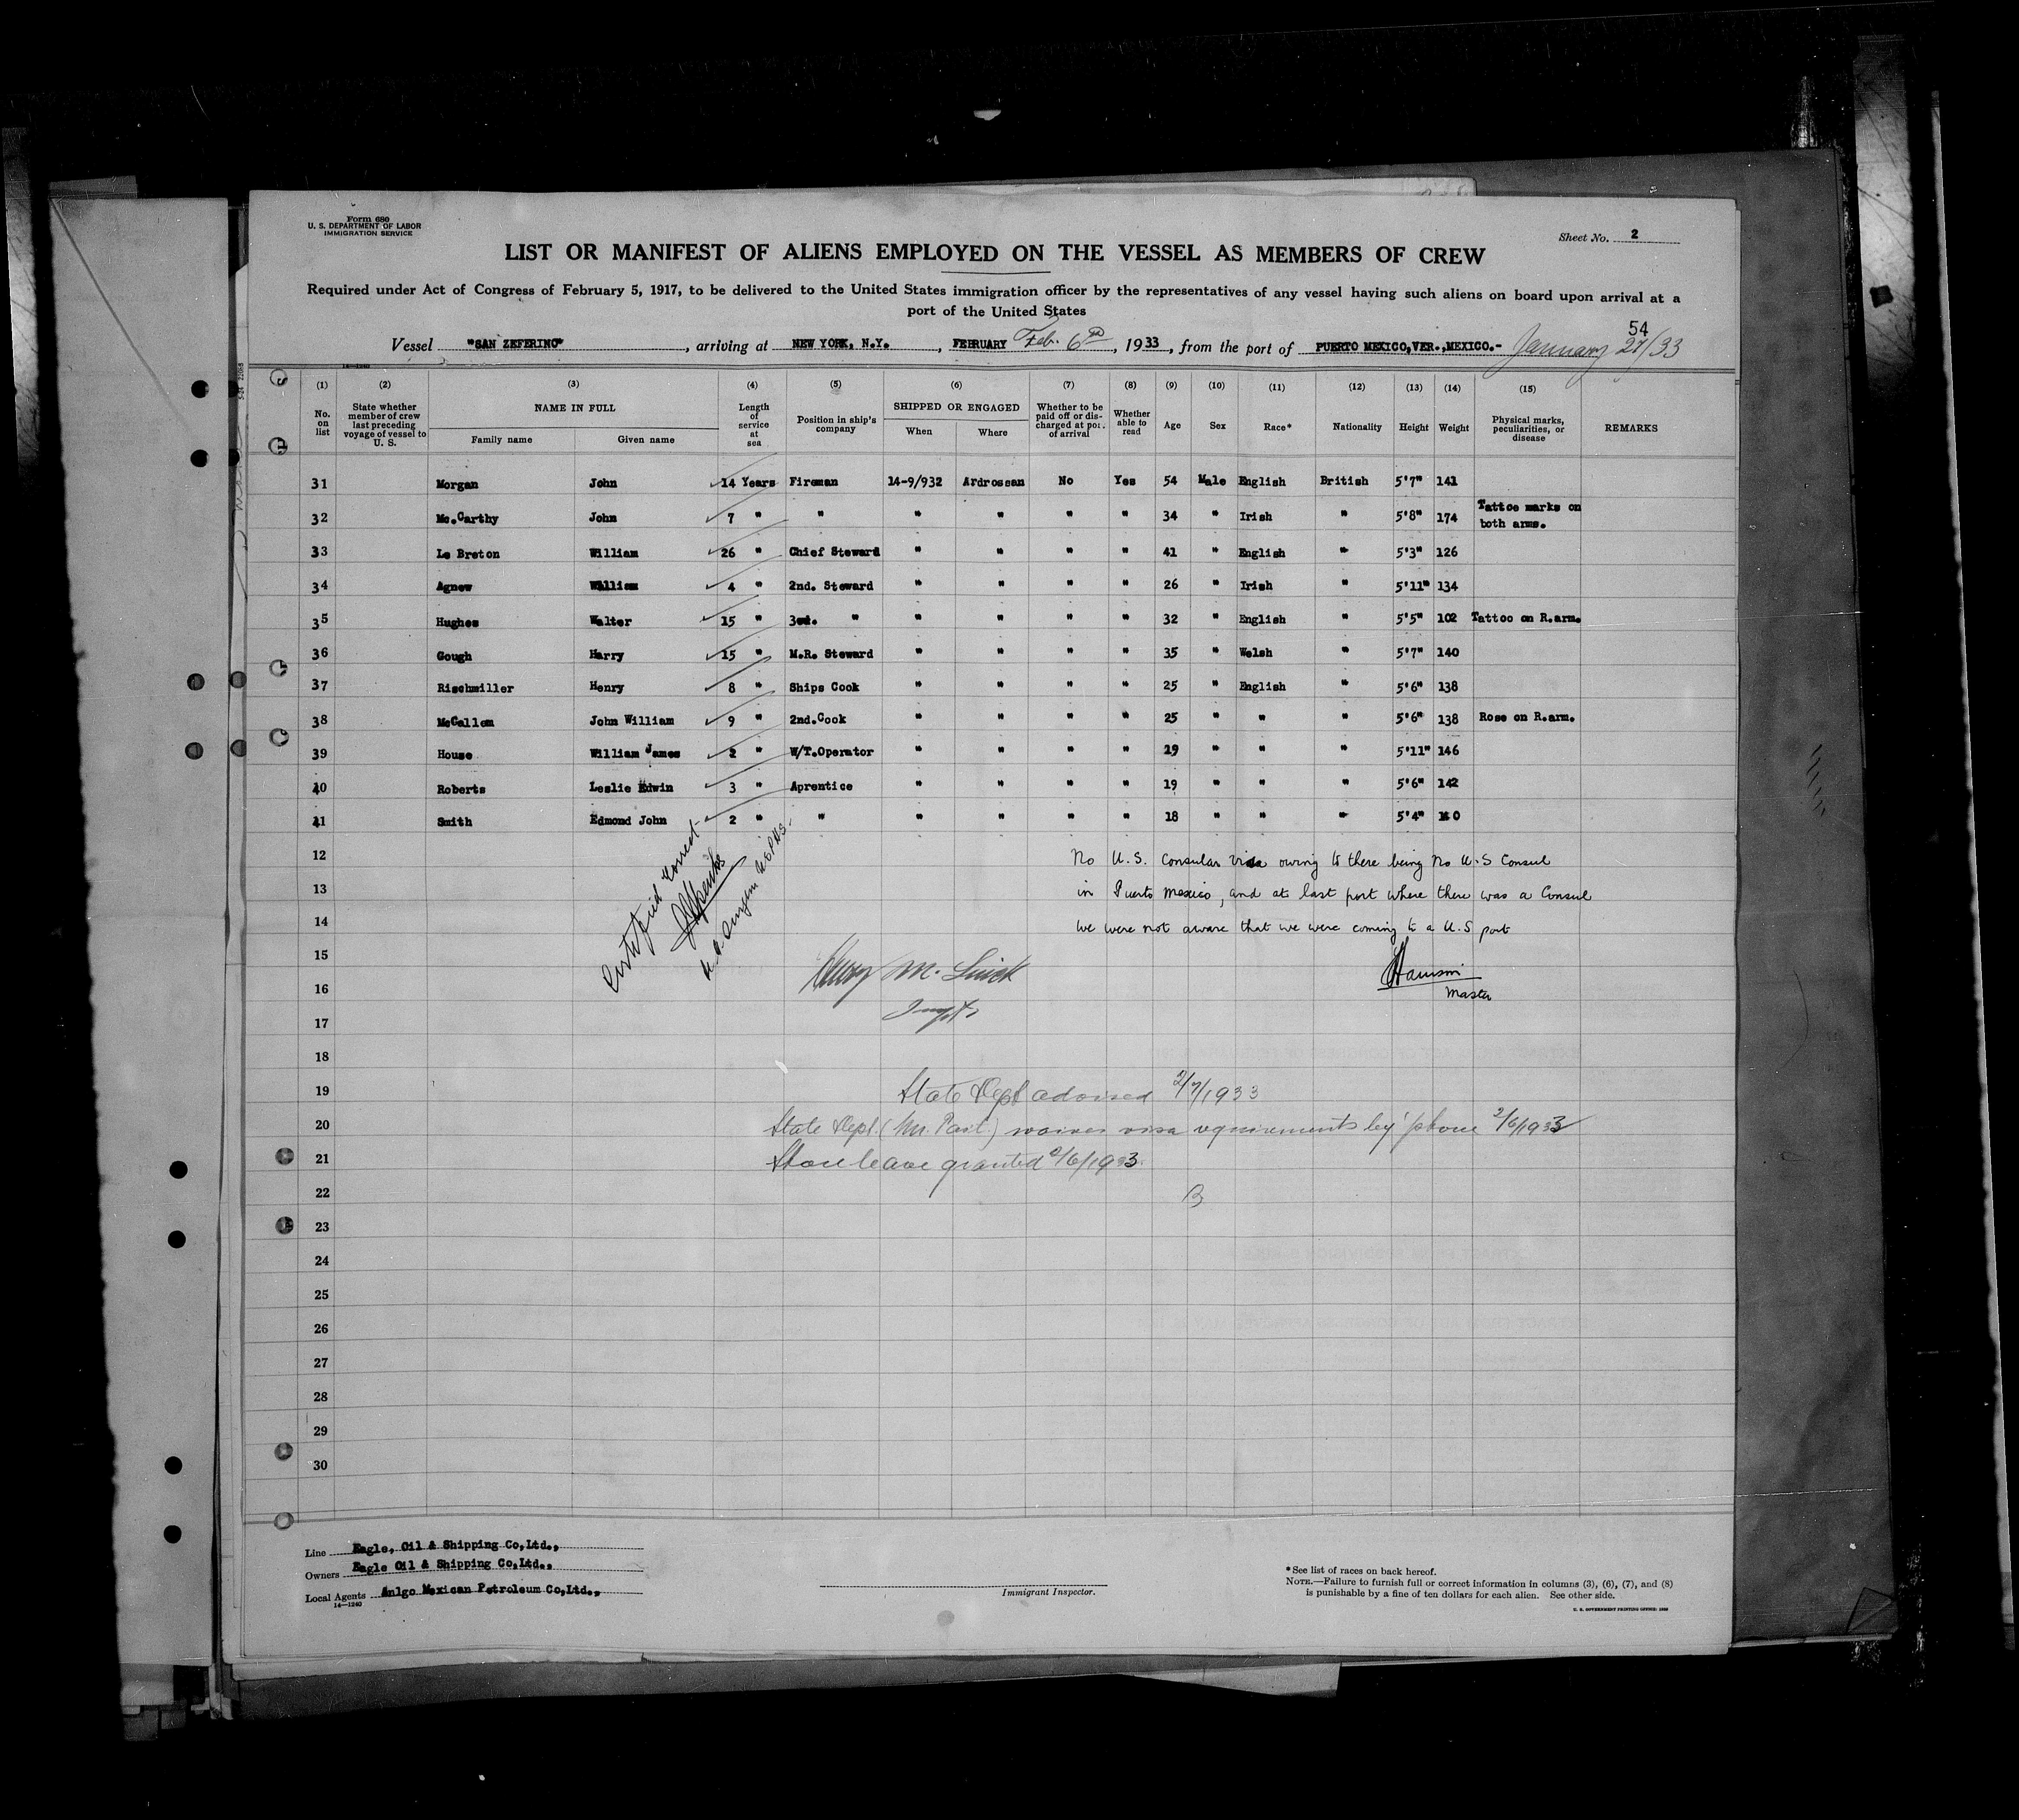 Form 680
U. S. DEPARTMENT OF LABOR
IMMIGRATION SERVICE
Sheet No. 2
LIST OR MANIFEST OF ALIENS EMPLOYED ON THE VESSEL AS MEMBERS OF CREW
Required under Act of Congress of February 5, 1917, to be delivered to the United States immigration officer by the representatives of any vessel having such aliens on board upon arrival at a
port of the United States
54
Vessel "SAN ZEFERINO", arriving at NEW YORK, N.Y., FEBRUARY Feb. 6th, 1933, from the port of PUERTO MEXICO,VER.,MEXICO.- January 27/33
14—1240
(1) (2) (3) (4) (5) (6) (7) (8) (9) (10) (11) (12) (13) (14) (15)
No. on list | State whether member of crew last preceding voyage of vessel to U. S. | NAME IN FULL | Family name | Given name | Length of service at sea | Position in ship's company | SHIPPED OR ENGAGED | When | Where | Whether to be paid off or discharged at port of arrival | Whether able to read | Age | Sex | Race* | Nationality | Height | Weight | Physical marks, peculiarities, or disease | REMARKS
31 Morgan John 14 Years Fireman 14-9/932 Ardrossan No Yes 54 Male English British 5'7" 141
32 Mc.Carthy John 7 " " " " " " 34 " Irish " 5'8" 174 Tattoe marks on both arms.
33 Le Breton William 26 " Chief Steward " " " " 41 " English " 5'3" 126
34 Agnew William 4 " 2nd. Steward " " " " 26 " Irish " 5'11" 134
35 Hughes Walter 15 " 3rd. " " " " " 32 " English " 5'5" 102 Tattoo on R.arm.
36 Gough Harry 15 " M.R. Steward " " " " 35 " Welsh " 5'7" 140
37 Rischmiller Henry 8 " Ships Cook " " " " 25 " English " 5'6" 138
38 McCallem John William 9 " 2nd.Cook " " " " 25 " " " 5'6" 138 Rose on R.arm.
39 House William James 2 " W/T.Operator " " " " 19 " " " 5'11" 146
40 Roberts Leslie Edwin 3 " Aprentice " " " " 19 " " " 5'6" 142
41 Smith Edmond John 2 " " " " " " 18 " " " 5'4"
12 No U.S. Consular visa owing to there being no U.S Consul
13 in Puerto Mexico, and at last port where there was a Consul
14 we were not aware that we were coming to a U.S port
Certified Correct
15
Master
16
17
18
19 State Dept advised 2/7/1933
20 State Dept. (Mr. ) waives visa requirements by 'phone 2/6/1933
21 Shore leave granted 2/6/1933.
22
23
24
25
26
27
28
29
30
Line Eagle, Oil & Shipping Co,Ltd.,
Owners Eagle Oil & Shipping Co,Ltd.,
Local Agents Anlgo Mexican Petroleum Co,Ltd.,
14—1240
Immigrant Inspector.
*See list of races on back hereof.
NOTE.—Failure to furnish full or correct information in columns (3), (6), (7), and (8)
is punishable by a fine of ten dollars for each alien. See other side.